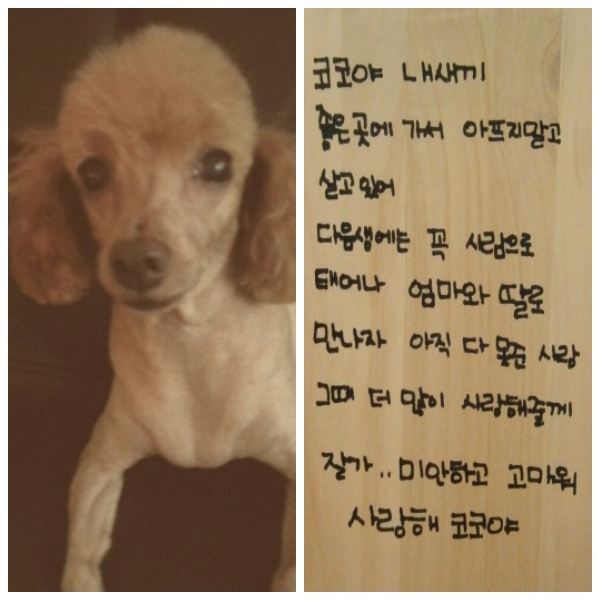 코코야 내새끼
좋은곳에 가서 아프지말고
살고있어
다음생에는 꼭 사람으로
태어나 엄마와 딸로
만나자 아직 다 못준 사랑
그때 더 많이 사랑해줄께
잘가.. 미안하고 고마워
사랑해 코코야